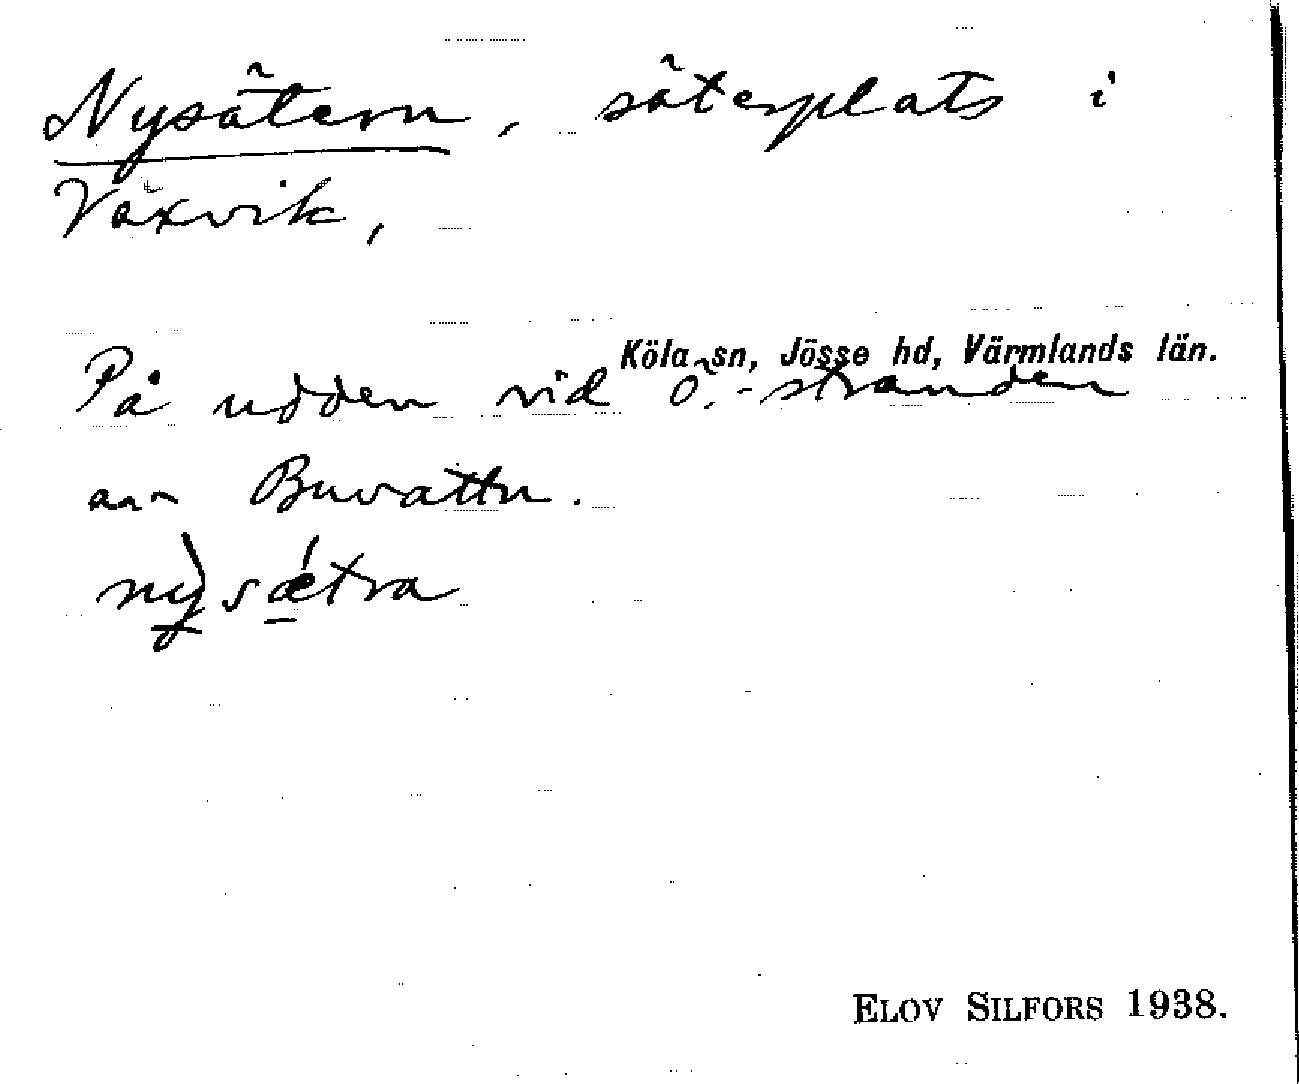 Nysätern, säterplats i
Växvik,
Köla sn, Jösse hd, Värmlands län.
På udden vid ö.-stranden
av Buvattn.
nỳsǽtra
ELOV SILFORS 1938.